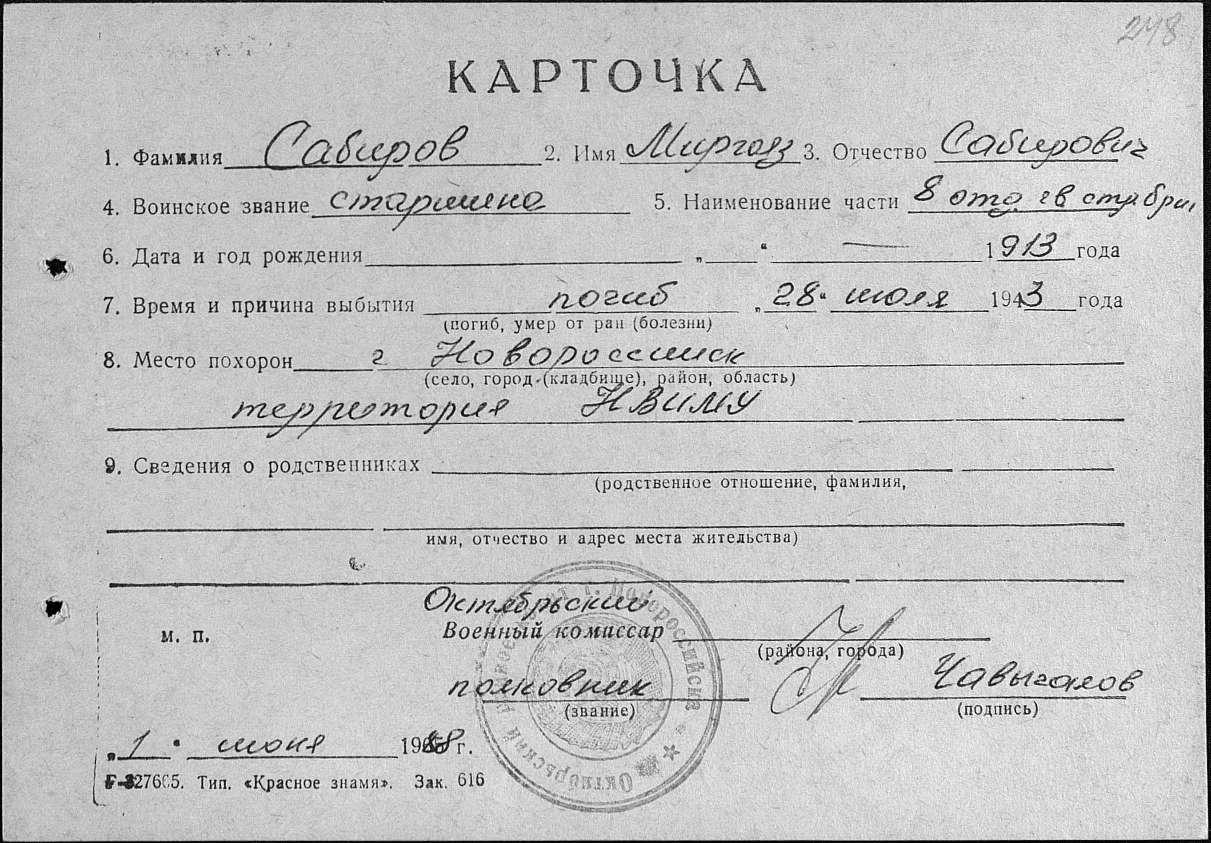 248
КАРТОЧКА
1. Фамилия Сабиров 2. Имя Миргаяз 3. Отчество Сабирович
4. Воинское звание старшина 5. Наименование части 8 отд. гв стр бриг
6. Дата и год рождения „ “ — 1913 года
7. Время и причина выбытия погиб „28“ июля 1943 года
(погиб, умер от ран (болезни)
8. Место похорон г Новороссийск
(село, город (кладбище), район, область)
территория НВИМУ
9. Сведения о родственниках
(родственное отношение, фамилия,
имя, отчество и адрес места жительства)
Октябрьский
м. п. Военный комиссар
(района, города)
полковник Чавыгалов
(звание) (подпись)
„1“ июня 1988 г.
27665. Тип. «Красное знамя». Зак. 616
Октябрьский г. Новороссийска